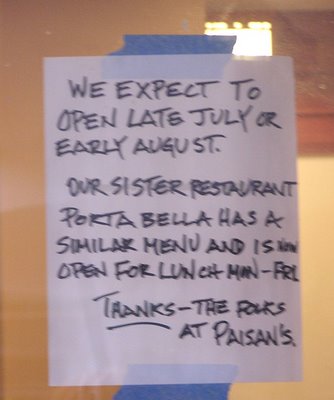 WE EXPECT TO
OPEN LATE JULY OR
EARLY AUGUST.
OUR SISTER RESTAURANT
PORTA BELLA HAS A
SIMILAR MENU AND IS NOW
OPEN FOR LUNCH MON-FRI.
THANKS-THE FOLKS
AT PAISAN'S.